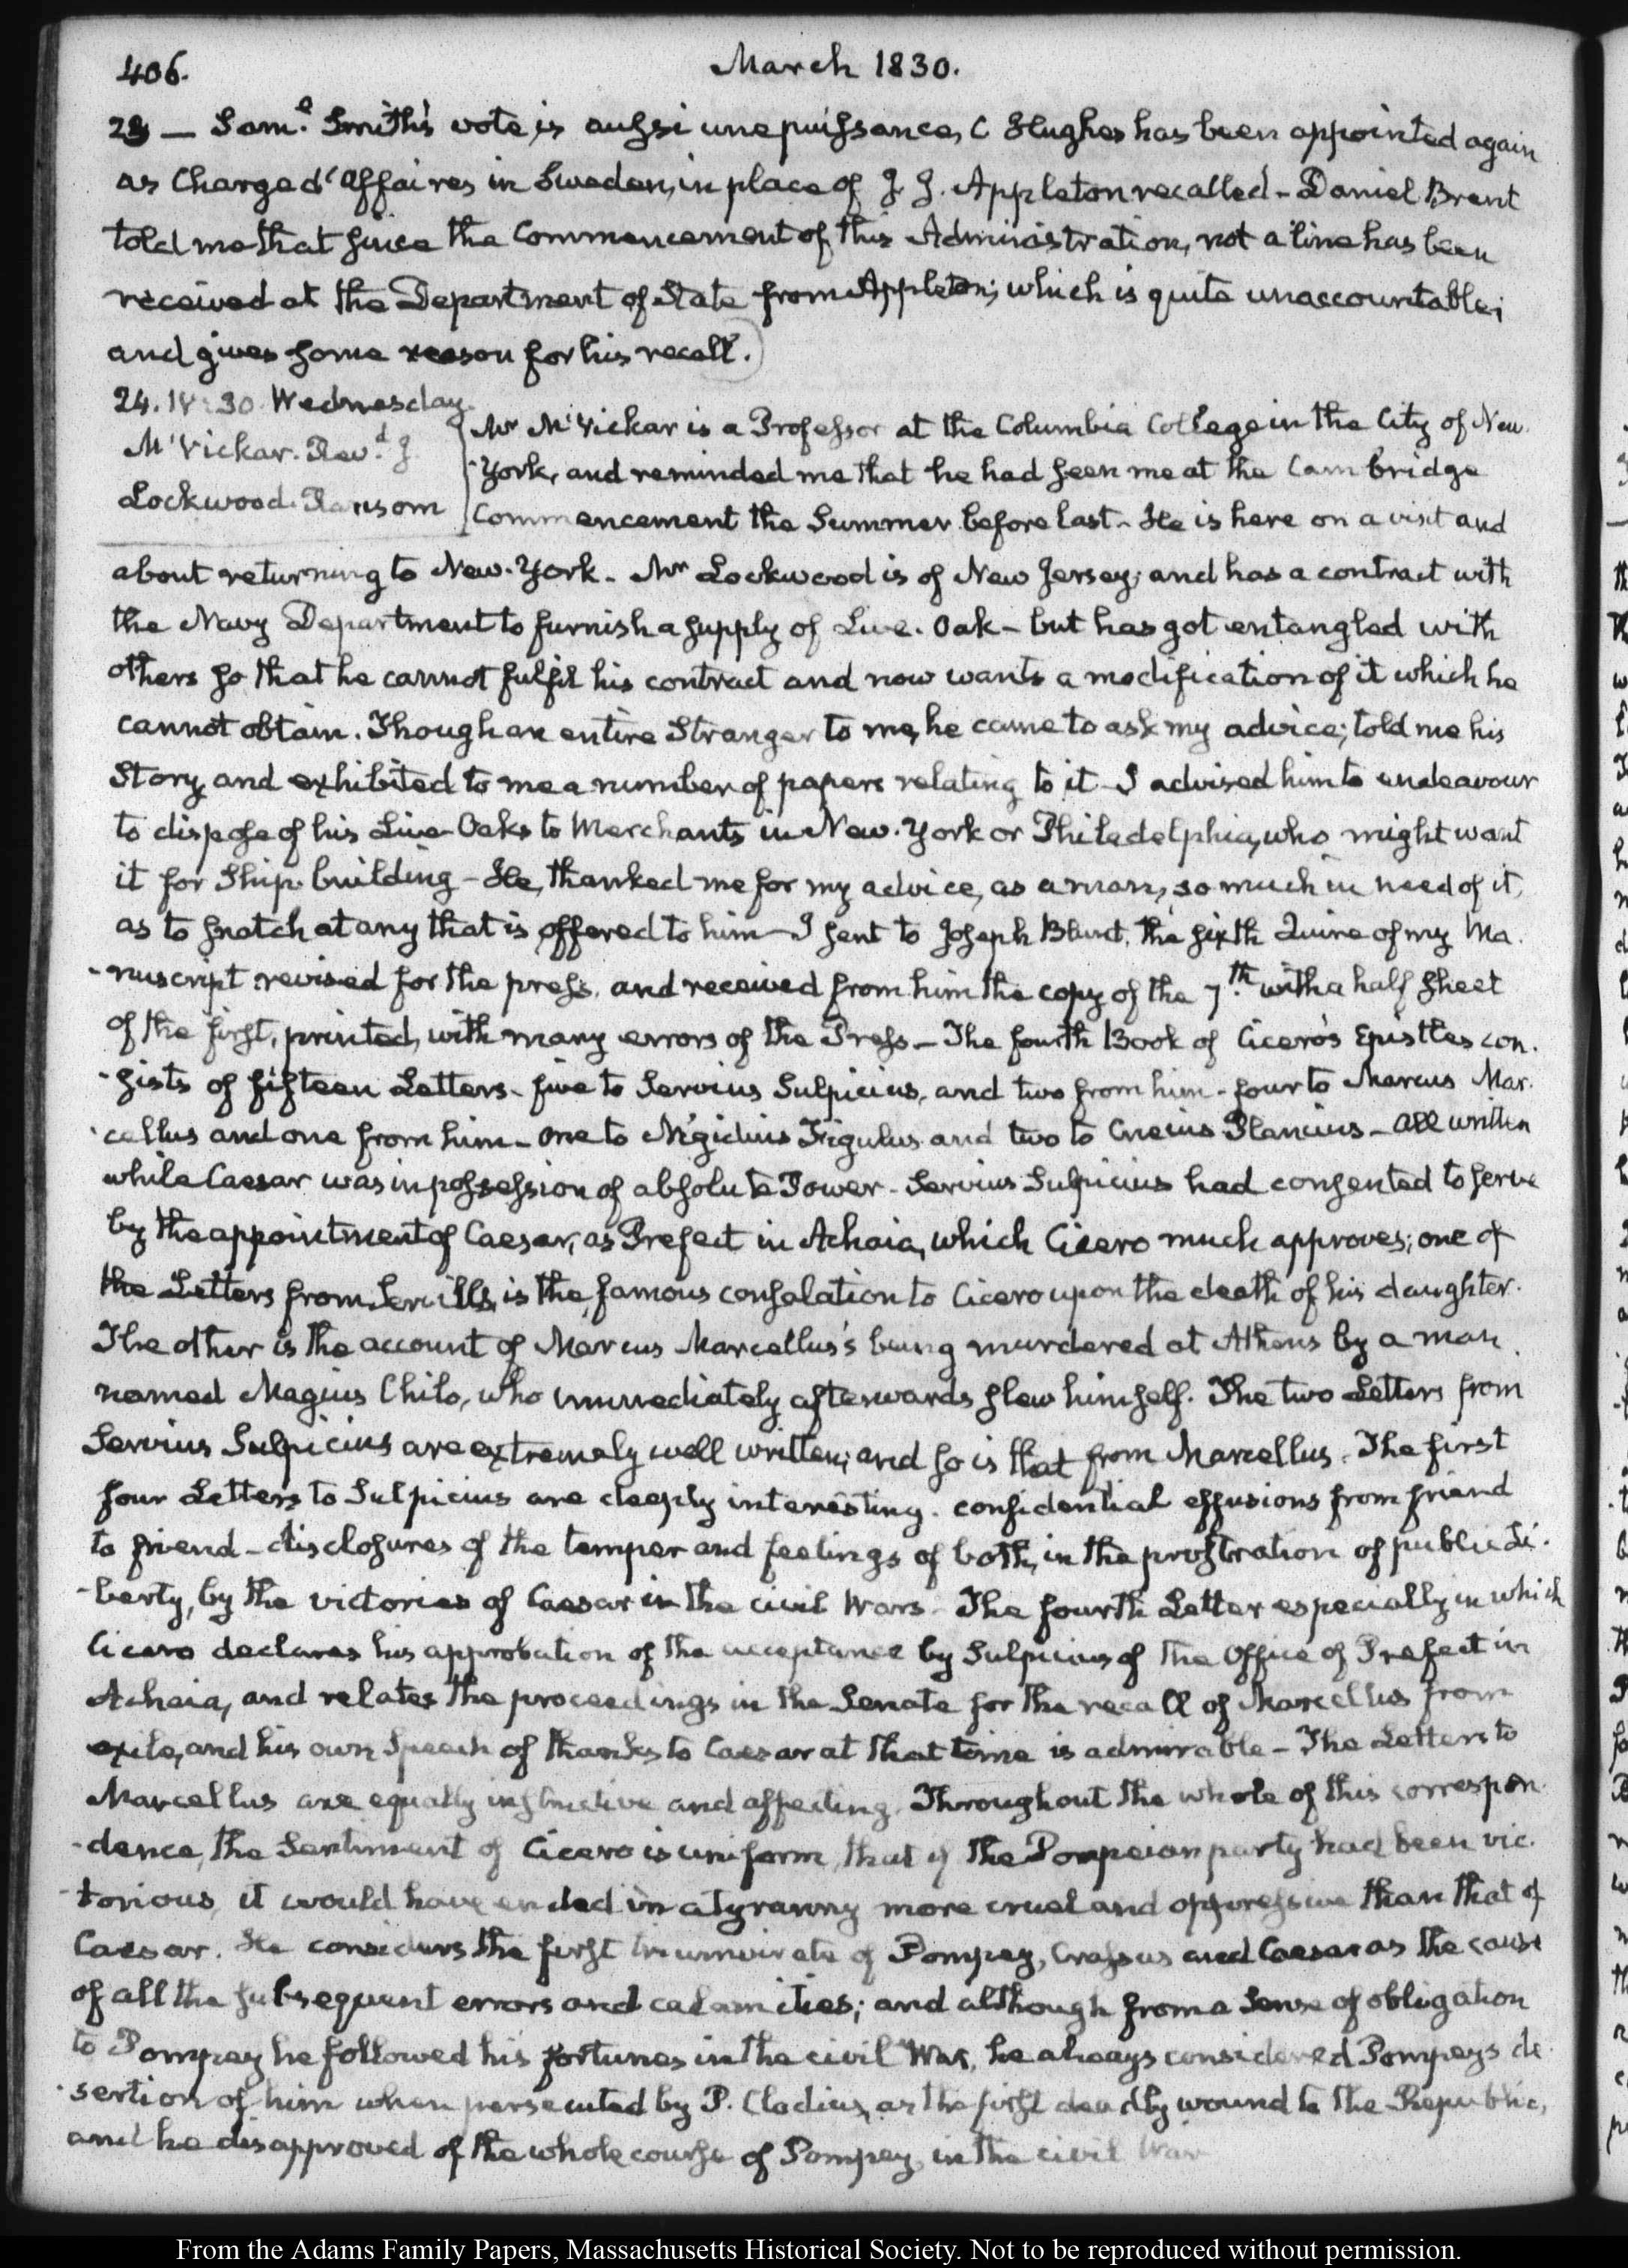 406.
March 1830.
23 — Saml. Smith's vote is aussi une puissance, C Hughes has been appointed again
as Chargé d'Affaires in Sweden, in place of J. J. Appleton recalled - Daniel Brent
told me that since the Commencement of this Administration, not a line has been
received at the Department of State from Appleton; which is quite unaccountable;
and gives some reason for his recall.
24. IV:30. Wednesday.
McVickar. Revd. J.
Lockwood. Ransom
Mr McVickar is a Professor at the Columbia College in the City of New-
-York, and reminded me that he had seen me at the Cambridge
Commencement the Summer before last - He is here on a visit and
about returning to New-York - Mr Lockwood is of New Jersey; and has a contract with
the Navy Department to furnish a supply of Live-Oak - but has got entangled with
others so that he cannot fulfil his contract and now wants a modification of it which he
cannot obtain. Though an entire Stranger to me, he came to ask my advice; told me his
Story, and exhibited to me a number of papers relating to it - I advised him to endeavour
to dispose of his Live-Oaks to Merchants in New-York or Philadelphia, who might want
it for Ship-building - He, thanked me for my advice, as a man, so much in need of it,
as to snatch at any that is offered to him - I sent to Joseph Blunt, the sixth Quire of my Ma-
-nuscript revised for the press, and received from him the copy of the 7th. with a half sheet
of the first, printed, with many errors of the Press - The fourth Book of Cicero's Epistles con-
-sists of fifteen Letters - five to Servius Sulpicius, and two from him - four to Marcus Mar-
-cellus and one from him - one to Nigidius Figulus and two to Cneius Plancius - All written
while Caesar was in possession of absolute Power - Servius Sulpicius had consented to serve
by the appointment of Caesar, as Prefect in Achaia, which Cicero much approves; one of
the Letters from Servius, is the famous consolation to Cicero upon the death of his daughter.
The other is the account of Marcus Marcellus's being murdered at Athens by a man
named Magius Chilo, who immediately afterwards slew himself. The two Letters from
Servius Sulpicius are extremely well written; and so is that from Marcellus. The first
four Letters to Sulpicius are deeply interesting. confidential effusions from friend
to friend - disclosures of the temper and feelings of both, in the prostration of public Li-
-berty, by the victories of Caesar in the civil Wars - The fourth Letter especially in which
Cicero declares his approbation of the acceptance by Sulpicius of the Office of Prefect in
Achaia, and relates the proceedings in the Senate for the recall of Marcellus from
exile, and his own Speech of thanks to Caesar at that time is admirable - The Letters to
Marcellus are equally instructive and affecting. Throughout the whole of this correspon-
-dence, the Sentiment of Cicero is uniform, that if the Pompeian party had been vic-
-torious, it would have ended in a tyranny more cruel and oppressive than that of
Caesar. He considers the first triumvirate of Pompey, Crassus and Caesar as the cause
of all the subsequent errors and calamities; and although from a Sense of obligation
to Pompey he followed his fortunes in the civil War, he always considered Pompey's de-
-sertion of him when persecuted by P. Clodius, as the first deadly wound to the Republic,
and he disapproved of the whole course of Pompey, in the civil War
From the Adams Family Papers, Massachusetts Historical Society. Not to be reproduced without permission.